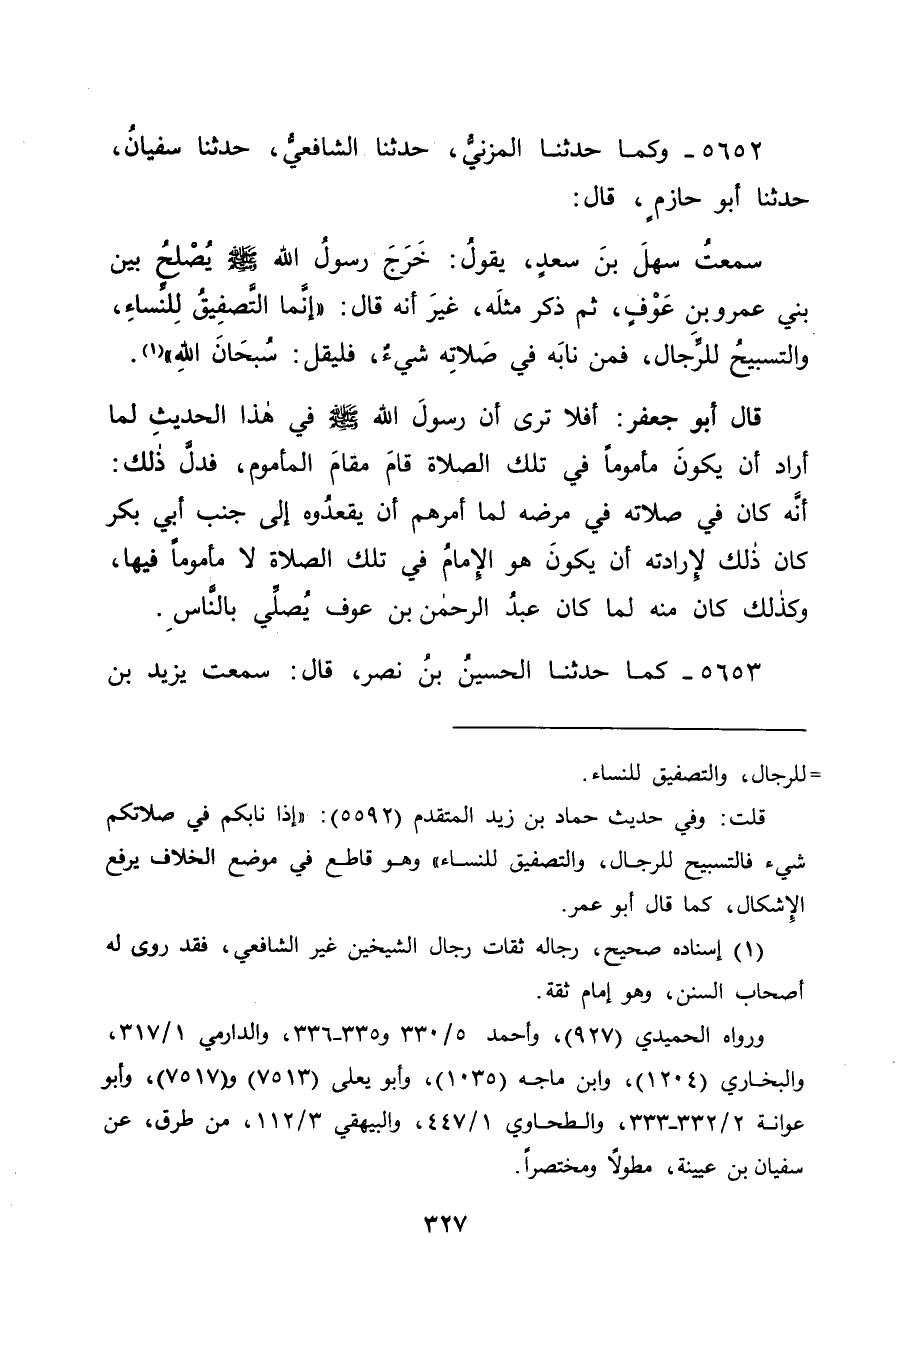 ٥٦٥٢ ـ وكما حدثنا المزنيُّ، حدثنا الشافعيُّ، حدثنا سفيانُ،
حدثنا أبو حازمٍ، قال:
سمعتُ سهلَ بنَ سعدٍ، يقولُ: خَرَجَ رسولُ الله ﷺ يُصْلحُ بين
بني عمرو بن عَوْفٍ، ثم ذكر مثلَه، غيرَ أنه قال: «إنَّما التَّصفِيقُ لِلنِّساءِ،
والتسبيحُ للرِّجال، فمن نابَه في صَلاتِه شيءٌ، فليقل: سُبحَانَ اللهِ»(١).
قال أبو جعفر: أفلا ترى أن رسولَ الله ﷺ في هٰذا الحديثِ لما
أراد أن يكونَ مأموماً في تلك الصلاة قامَ مقامَ المأموم، فدلَّ ذٰلك:
أنَّه كان في صلاته في مرضه لما أمرهم أن يقعدُوه إلى جنب أبي بكر
كان ذٰلك لإرادته أن يكونَ هو الإمامُ في تلك الصلاة لا مأموماً فيها،
وكذٰلك كان منه لما كان عبدُ الرحمٰن بن عوف يُصلِّي بالنَّاسِ.
٥٦٥٣ ـ كما حدثنا الحسينُ بنُ نصر، قال: سمعت يزيد بن
=للرجال، والتصفيق للنساء.
قلت: وفي حديث حماد بن زيد المتقدم (٥٥٩٢): «إذا نابكم في صلاتكم
شيء فالتسبيح للرجال، والتصفيق للنساء» وهو قاطع في موضع الخلاف يرفع
الإشكال، كما قال أبو عمر.
(١) إسناده صحيح، رجاله ثقات رجال الشيخين غير الشافعي، فقد روى له
أصحاب السنن، وهو إمام ثقة.
ورواه الحميدي (٩٢٧)، وأحمد ٣٣٠/٥ و٣٣٥ـ٣٣٦، والدارمي ٣١٧/١،
والبخاري (١٢٠٤)، وابن ماجه (١٠٣٥)، وأبو يعلى (٧٥١٣) و(٧٥١٧)، وأبو
عوانة ٣٣٢/٢ـ٣٣٣، والطحاوي ٤٤٧/١، والبيهقي ١١٢/٣، من طرق، عن
سفيان بن عيينة، مطولاً ومختصراً.
٣٢٧